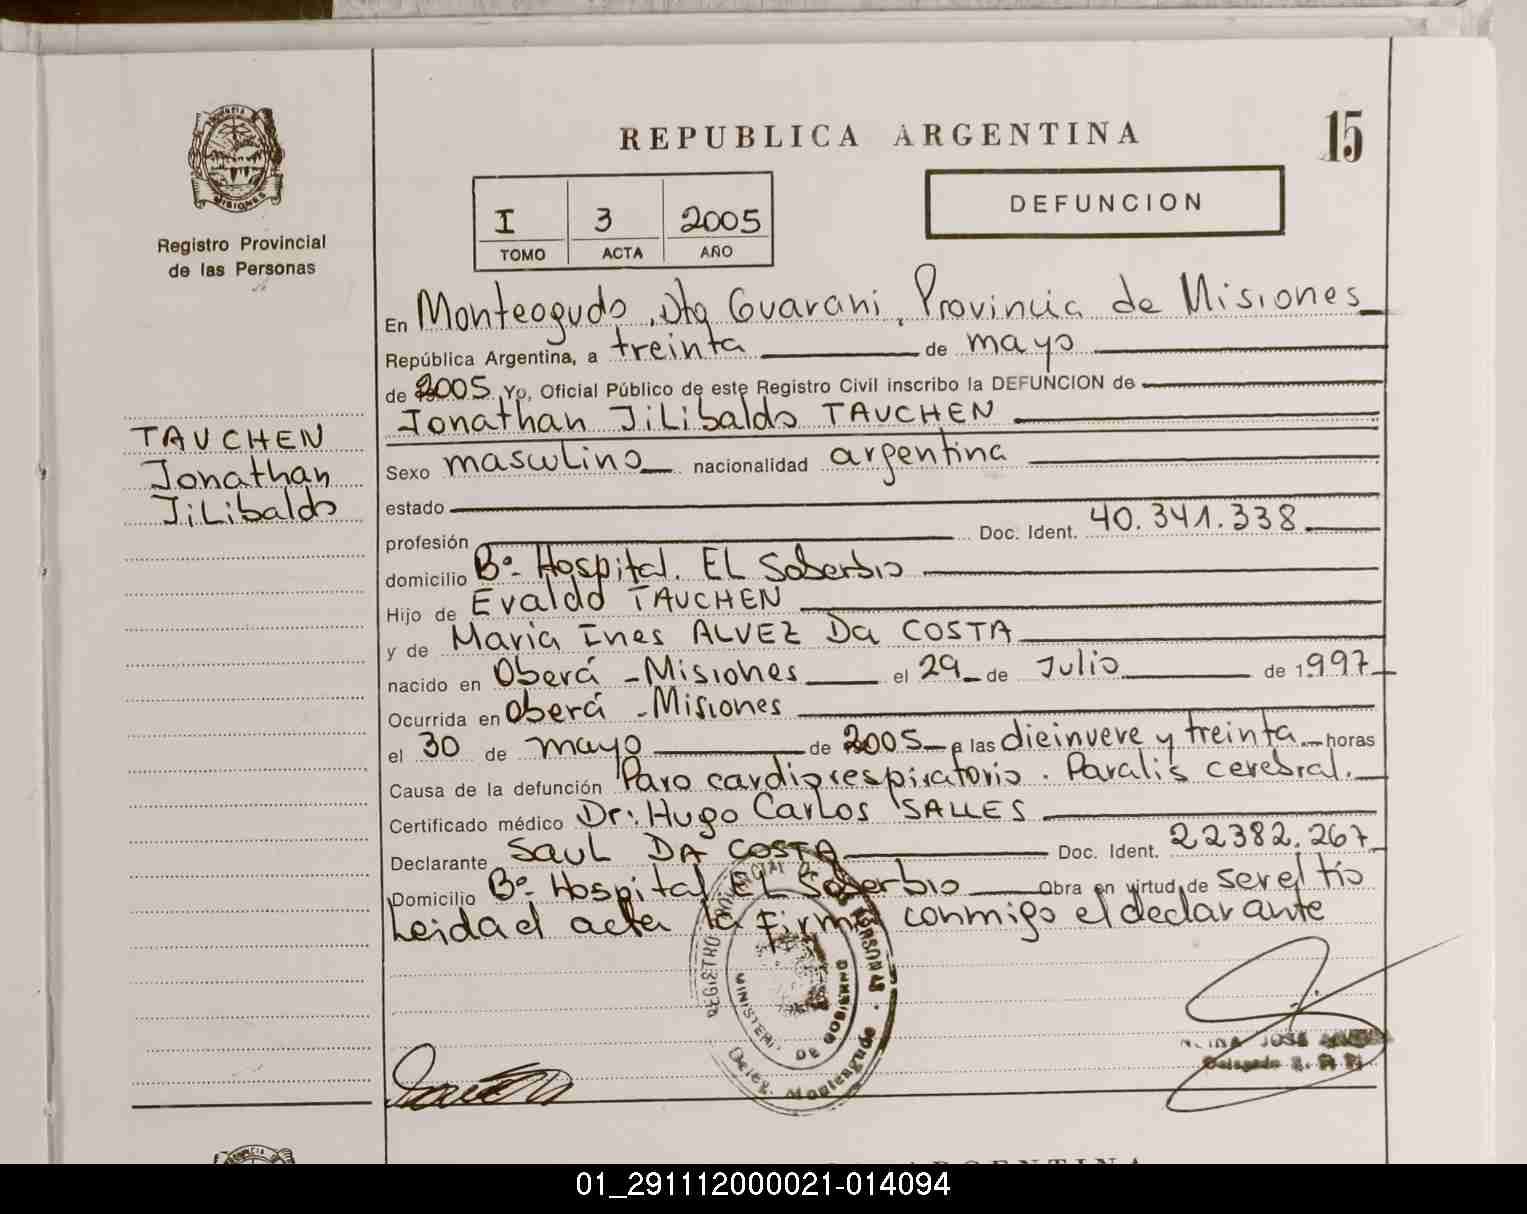 PROVINCIA DE
MISIONES
Registro Provincial
de las Personas
TAUCHEN
Jonathan
JiLibaldo
REPUBLICA ARGENTINA
15
I 3 2005
TOMO ACTA AÑO
DEFUNCION
En Monteagudo, Dto Guarani, Provincia de Misiones
República Argentina, a treinta de mayo
de 2005 Yo, Oficial Público de este Registro Civil inscribo la DEFUNCION de
Jonathan JiLibaldo TAUCHEN
Sexo masculino nacionalidad argentina
estado
profesión Doc. Ident. 40.341.338
domicilio Bº- Hospital. EL Soberbio
Hijo de Evaldo TAUCHEN
y de Maria Ines ALVEZ Da COSTA
nacido en Oberá - Misiones el 29 de Julio de 1.997
Ocurrida en Oberá - Misiones
el 30 de mayo de 2005 a las dieinueve y treinta horas
Causa de la defunción Paro cardiorespiratorio. Paralis cerebral.
Certificado médico Dr: Hugo Carlos SALLES
Declarante SauL DA COSTA Doc. Ident. 22382.267
Domicilio Bº- Hospital EL Soberbio Obra en virtud de ser el tío
Leida el acta la firma conmigo el declarante
REGISTRO PROVINCIAL DE LAS PERSONAS
MINISTERIO DE GOBIERNO
Deleg. Monteagudo
JOSE
Delegado R. P. P.
ARGENTINA
01_291112000021-014094